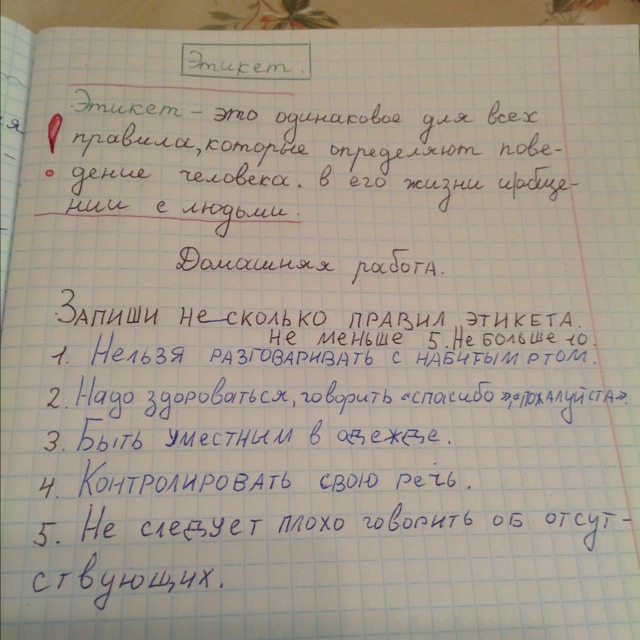 Этикет.
Этикет – это одинаковое для всех
правила, которые определяют пове-
дение человека. в его жизни и обще-
нии с людьми.
Домашняя работа.
Запиши несколько правил этикета.
не меньше 5. Не больше 10.
1. Нельзя разговаривать с набитым ртом.
2. Надо здороваться, говорить «спасибо», «пожалуйста».
3. Быть уместным в одежде.
4. Контролировать свою речь.
5. Не следует плохо говорить об отсут-
ствующих.